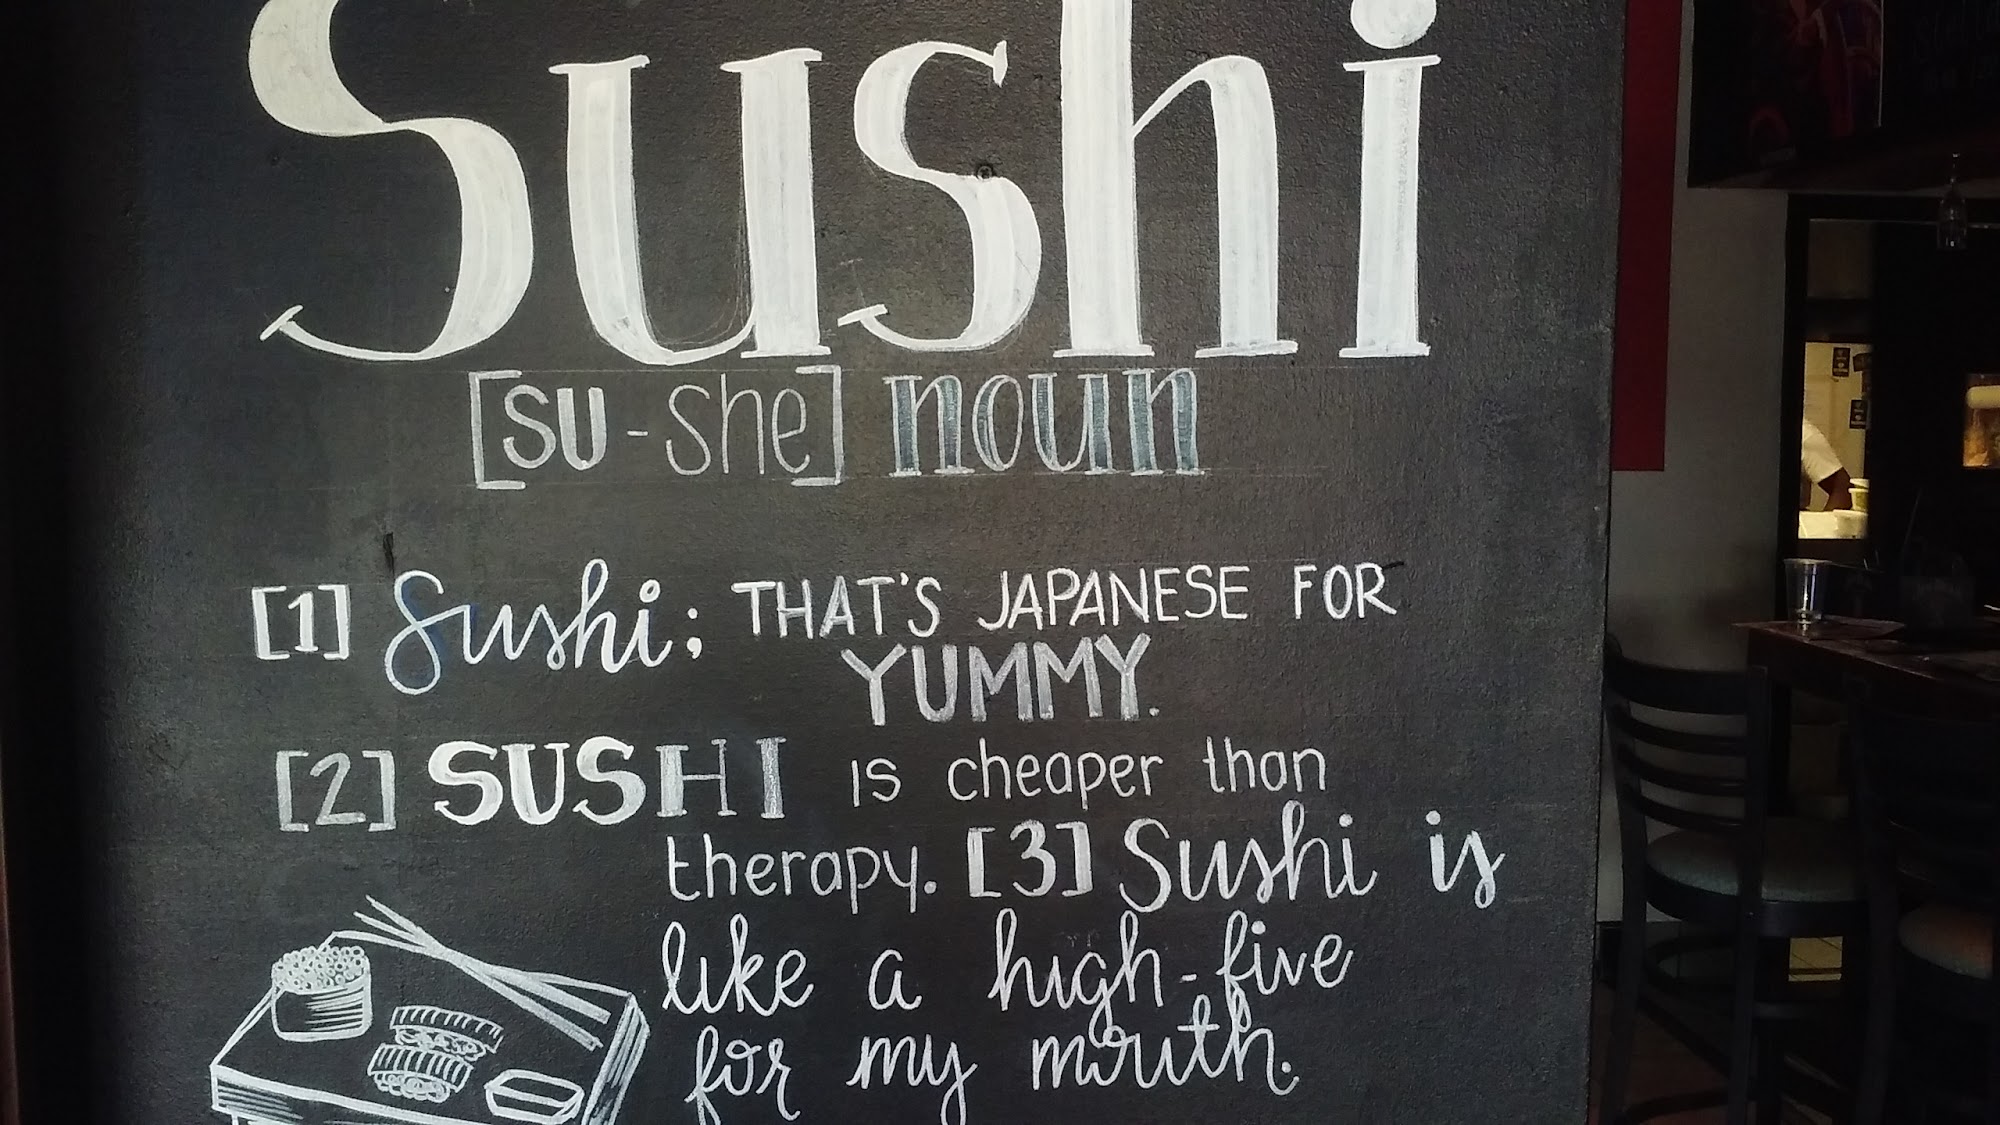 Sushi
[su-she] noun
[1] Sushi; THAT'S JAPANESE FOR
YUMMY.
[2] SUSHI is cheaper than
therapy. [3] Sushi is
like a high-five
for my mouth.